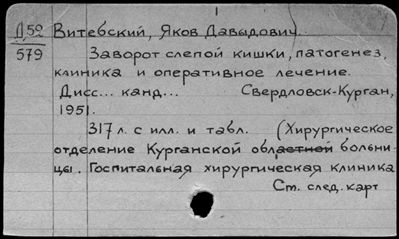 Д 52 Витебский, Яков Давыдович.
579 Заворот слепой кишки, патогенез,
клиника и оперативное лечение.
Дисс... канд... Свердловск-Курган,
1951.
317 л. с илл. и табл. (Хирургическое
отделение Курганской областной больни-
цы. Госпитальная хирургическая клиника
См. след. карт